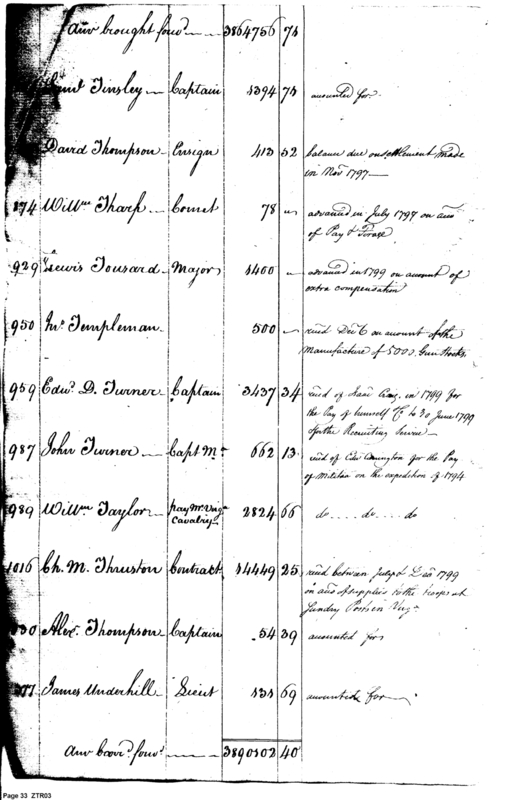 Amt brought forwd 3864756 74
Saml Tinsley Captain 1394 74 accounted for
David Thompson Ensign 413 52 balance due on settlement made
in Novr 1797
874 Willm Tharp Cornet 78 advanced in July 1797 on acct
of Pay & Forage
929 Lewis Tousard Major 1400 advanced in 1799 on account of
extra compensation
950 Jno Templeman 500 recd Decr on account of the
Manufacture of 5000 Gun Stocks
959 Edwd D. Turner Captain 3437 34 recd of Isaac Craig in 1799 for
the Pay of himself &c to 30 June 1799
of the Recruiting Service
987 John Turner Capt Mr 662 13 recd of Edwd Carrington for the Pay
of Militia on the expedition of 1794
989 Willm Taylor pay Mr Virga
Cavalry 2824 66 do do do
1016 Ch. M. Thruston Contract 14449 25 recd between July & Decr 1799
on acct of supplies to the troops at
Sundry Posts in Virga
Alexr Thompson Captain 54 39 accounted for
James Underhill Lieut 131 69 accounted for
Amt carrd forwd 3890102 40
Page 33 ZTR03